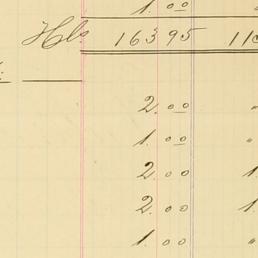 1.00
Hls 16395 11
2.00 "
1.00 "
2.00 1
2.00 1.
1.00 "